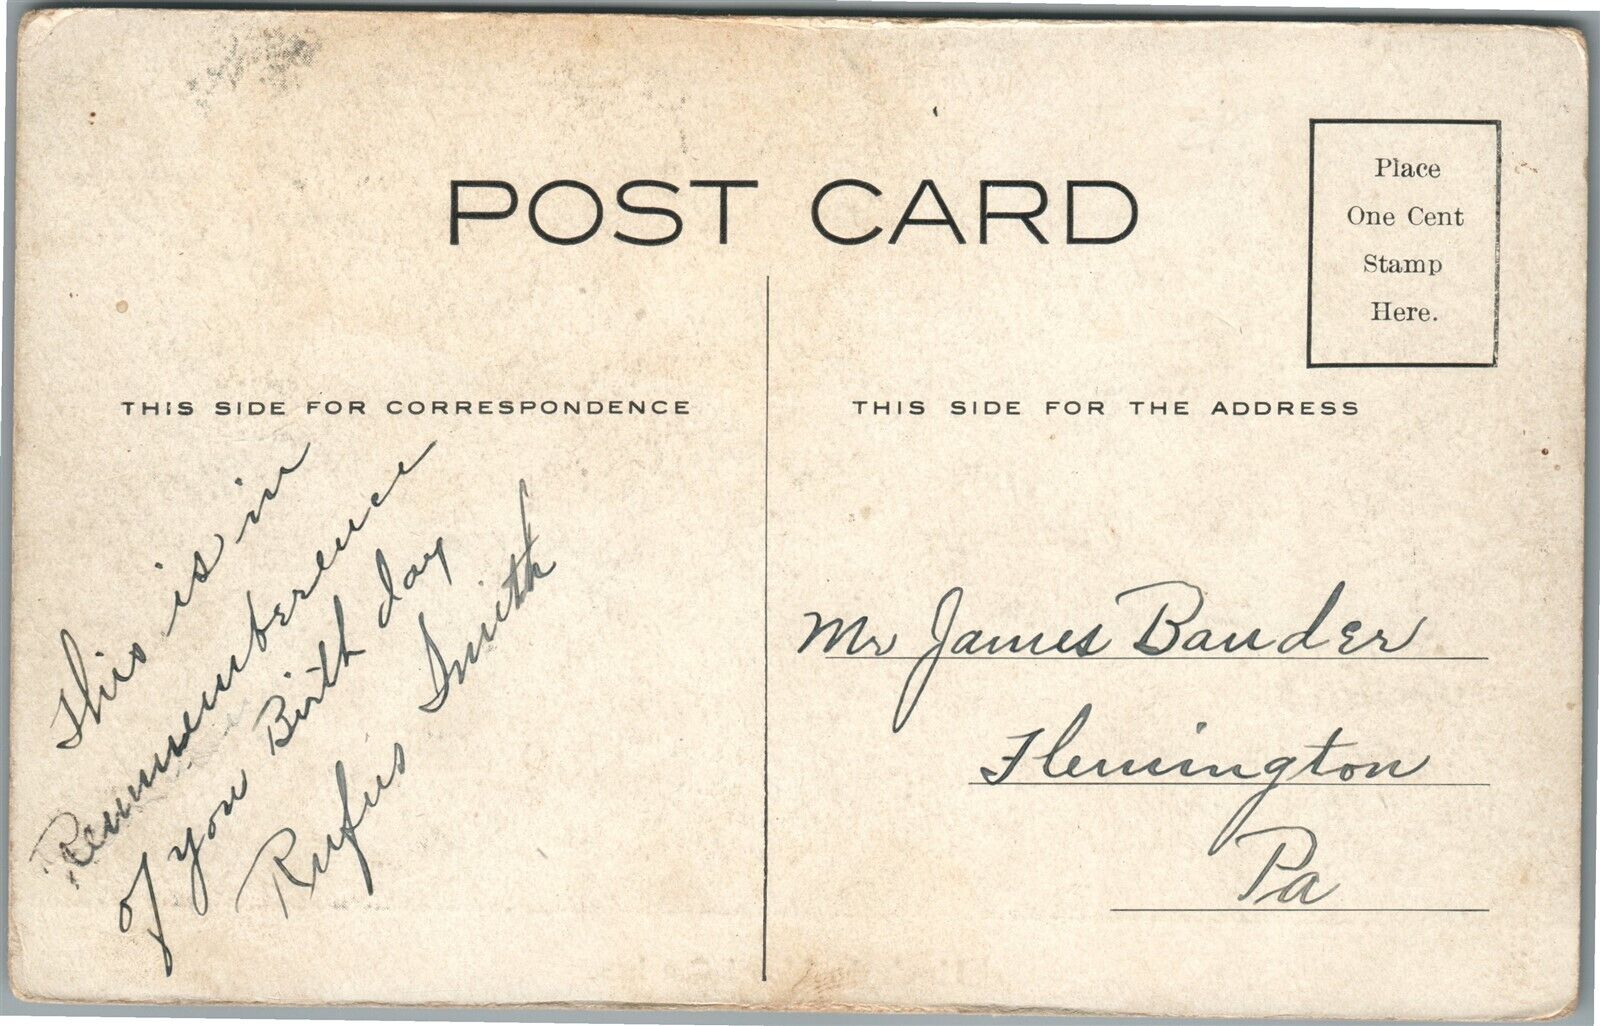 POST CARD
Place
One Cent
Stamp
Here.
THIS SIDE FOR CORRESPONDENCE
This is in
Remmemberence
of you Birth day
Rufus Smith
THIS SIDE FOR THE ADDRESS
Mr James Bauder
Flemington
Pa